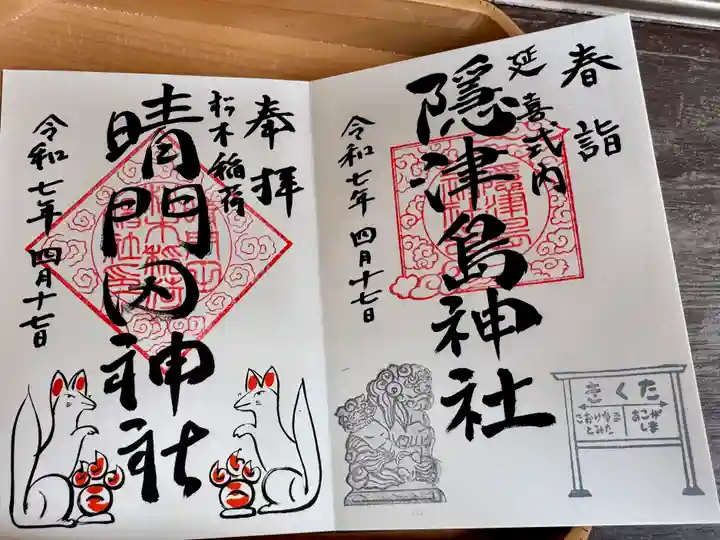 春詣
延喜式内
隠津島神社
令和七年 四月十七日
きくた
こおりやま
とみた
あこがしま
奉拝
杉木稲荷
晴門田神社
令和七年 四月十七日